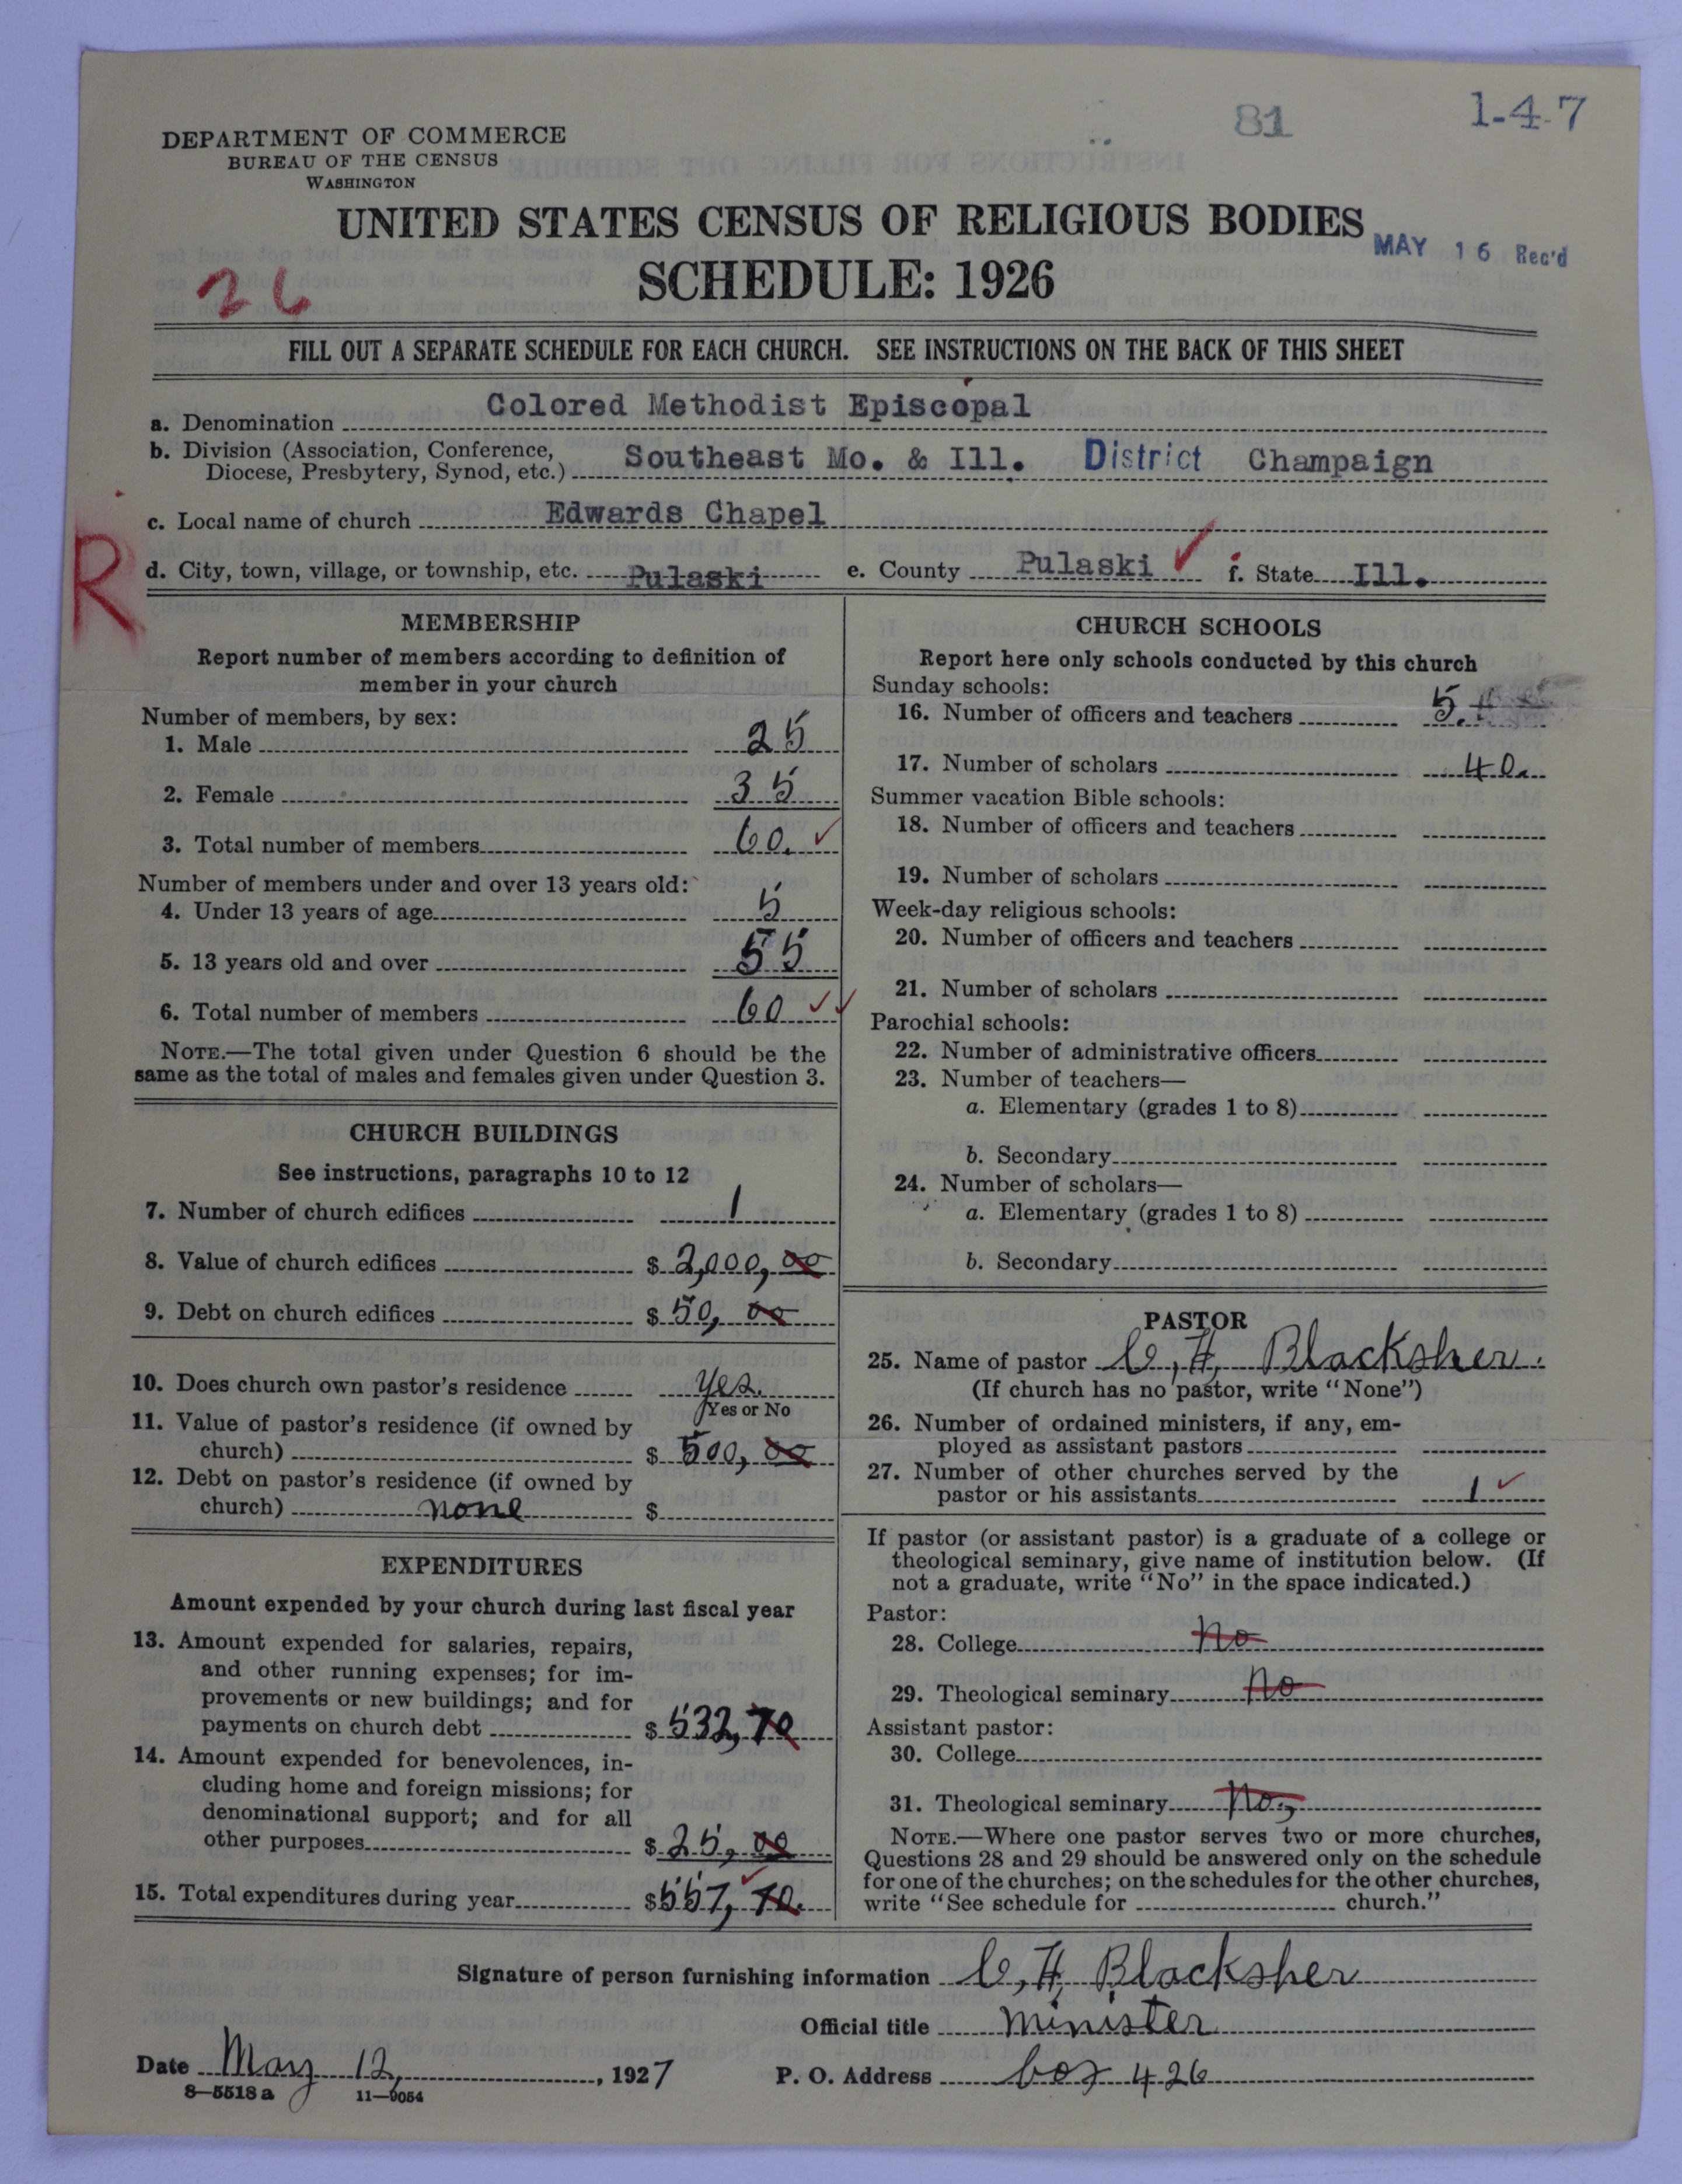 81
1-4-7
DEPARTMENT OF COMMERCE
BUREAU OF THE CENSUS
WASHINGTON
UNITED STATES CENSUS OF RELIGIOUS BODIES
MAY 16 Rec'd
26
SCHEDULE: 1926
FILL OUT A SEPARATE SCHEDULE FOR EACH CHURCH. SEE INSTRUCTIONS ON THE BACK OF THIS SHEET
a. Denomination Colored Methodist Episcopal
b. Division (Association, Conference, Diocese, Presbytery, Synod, etc.) Southeast Mo. & Ill. District Champaign
c. Local name of church Edwards Chapel
R
d. City, town, village, or township, etc. Pulaski e. County Pulaski ✓ f. State Ill.
MEMBERSHIP
Report number of members according to definition of
member in your church
Number of members, by sex:
1. Male 25
2. Female 35
3. Total number of members 60. ✓
Number of members under and over 13 years old:
4. Under 13 years of age 5
5. 13 years old and over 55
6. Total number of members 60 ✓✓
NOTE.—The total given under Question 6 should be the
same as the total of males and females given under Question 3.
CHURCH BUILDINGS
See instructions, paragraphs 10 to 12
7. Number of church edifices 1
8. Value of church edifices $ 2,000,00
9. Debt on church edifices $ 50, 00
10. Does church own pastor's residence yes.
Yes or No
11. Value of pastor's residence (if owned by
church) $ 500,00
12. Debt on pastor's residence (if owned by
church) none $
EXPENDITURES
Amount expended by your church during last fiscal year
13. Amount expended for salaries, repairs,
and other running expenses; for im-
provements or new buildings; and for
payments on church debt $ 532,70
14. Amount expended for benevolences, in-
cluding home and foreign missions; for
denominational support; and for all
other purposes $ 25,00
15. Total expenditures during year $557,70.
CHURCH SCHOOLS
Report here only schools conducted by this church
Sunday schools:
16. Number of officers and teachers 5.
17. Number of scholars 40.
Summer vacation Bible schools:
18. Number of officers and teachers
19. Number of scholars
Week-day religious schools:
20. Number of officers and teachers
21. Number of scholars
Parochial schools:
22. Number of administrative officers
23. Number of teachers—
a. Elementary (grades 1 to 8)
b. Secondary
24. Number of scholars—
a. Elementary (grades 1 to 8)
b. Secondary
PASTOR
25. Name of pastor C, H, Blacksher.
(If church has no pastor, write "None")
26. Number of ordained ministers, if any, em-
ployed as assistant pastors
27. Number of other churches served by the
pastor or his assistants 1 ✓
If pastor (or assistant pastor) is a graduate of a college or
theological seminary, give name of institution below. (If
not a graduate, write "No" in the space indicated.)
Pastor:
28. College no
29. Theological seminary no
Assistant pastor:
30. College
31. Theological seminary no,
NOTE.—Where one pastor serves two or more churches,
Questions 28 and 29 should be answered only on the schedule
for one of the churches; on the schedules for the other churches,
write "See schedule for church."
Signature of person furnishing information C, H, Blacksher
Official title minister
Date May 12, , 1927 P. O. Address box 426
8—5518a 11—9054